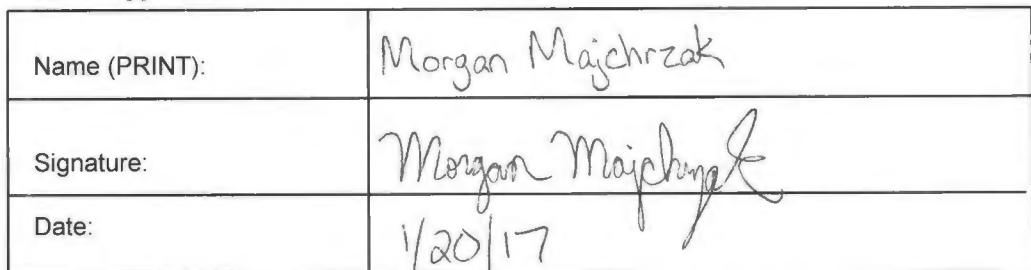 Name (PRINT): Morgan Majchrzak
Signature: Morgan Majchrzak
Date: 1/20/17